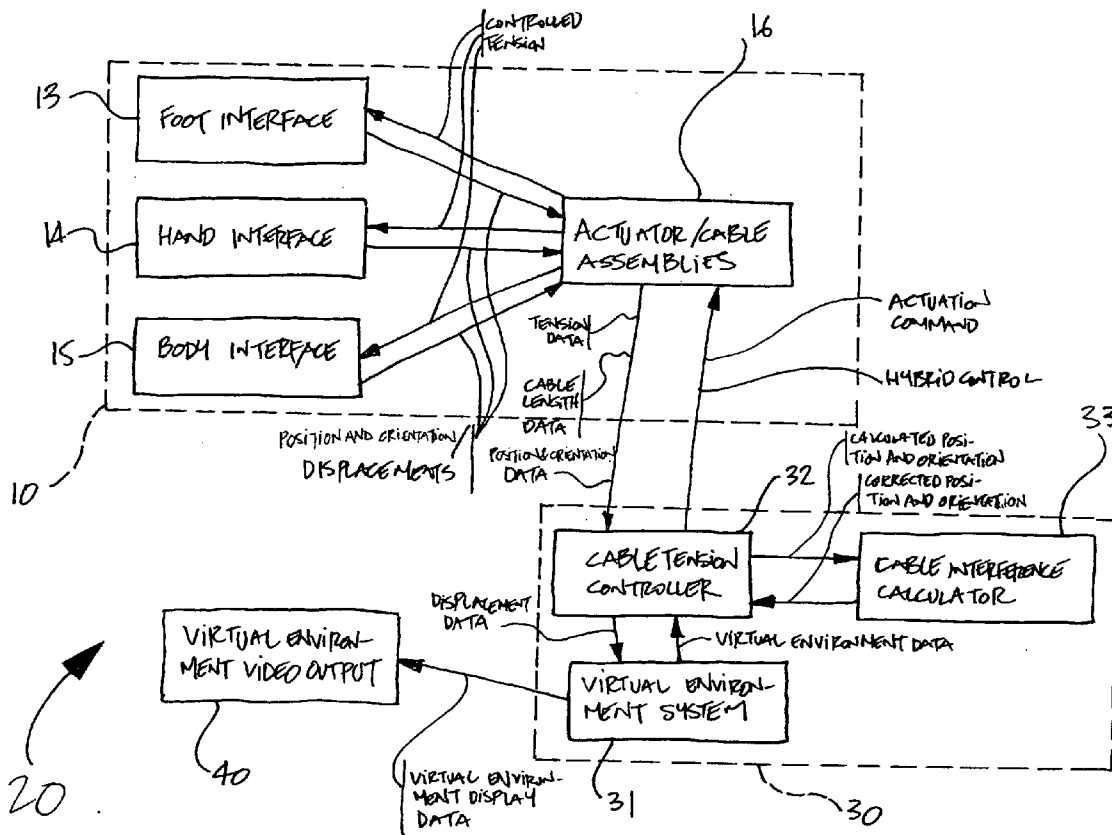 CONTROLLED
TENSION
16
13
FOOT INTERFACE
14
HAND INTERFACE
ACTUATOR/CABLE
ASSEMBLIES
15
BODY INTERFACE
TENSION
DATA
CABLE
LENGTH
DATA
ACTUATION
COMMAND
HYBRID CONTROL
10
POSITION AND ORIENTATION
DISPLACEMENTS
POSITION & ORIENTATION
DATA
CALCULATED POSI-
TION AND ORIENTATION
CORRECTED POSI-
TION AND ORIENTATION
33
32
CABLE TENSION
CONTROLLER
CABLE INTERFERENCE
CALCULATOR
DISPLACEMENT
DATA
VIRTUAL ENVIRONMENT DATA
VIRTUAL ENVIRON-
MENT VIDEO OUTPUT
VIRTUAL ENVIRON-
MENT SYSTEM
20
40
VIRTUAL ENVIRON-
MENT DISPLAY
DATA
31
30